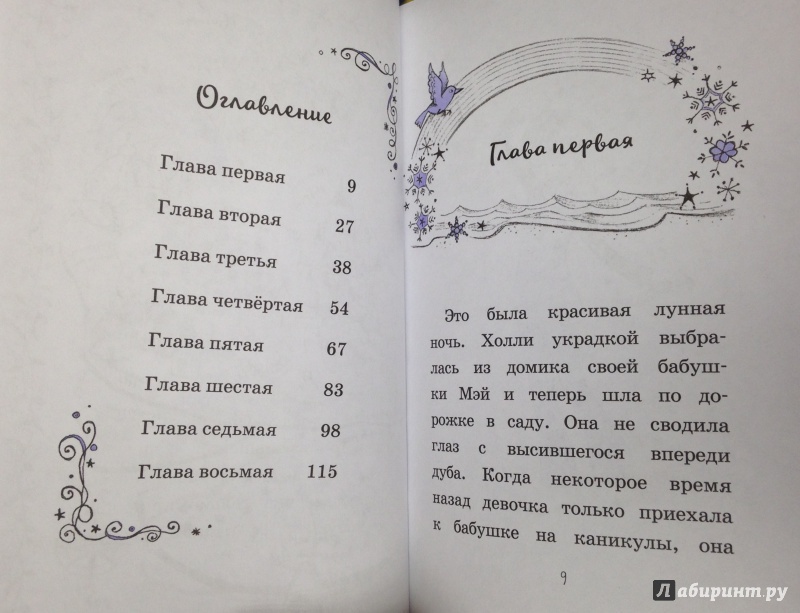 Оглавление
Глава первая 9
Глава вторая 27
Глава третья 38
Глава четвёртая 54
Глава пятая 67
Глава шестая 83
Глава седьмая 98
Глава восьмая 115
Глава первая
Это была красивая лунная
ночь. Холли украдкой выбра-
лась из домика своей бабуш-
ки Мэй и теперь шла по до-
рожке в саду. Она не сводила
глаз с высившегося впереди
дуба. Когда некоторое время
назад девочка только приехала
к бабушке на каникулы, она
9
Лабиринт.ру